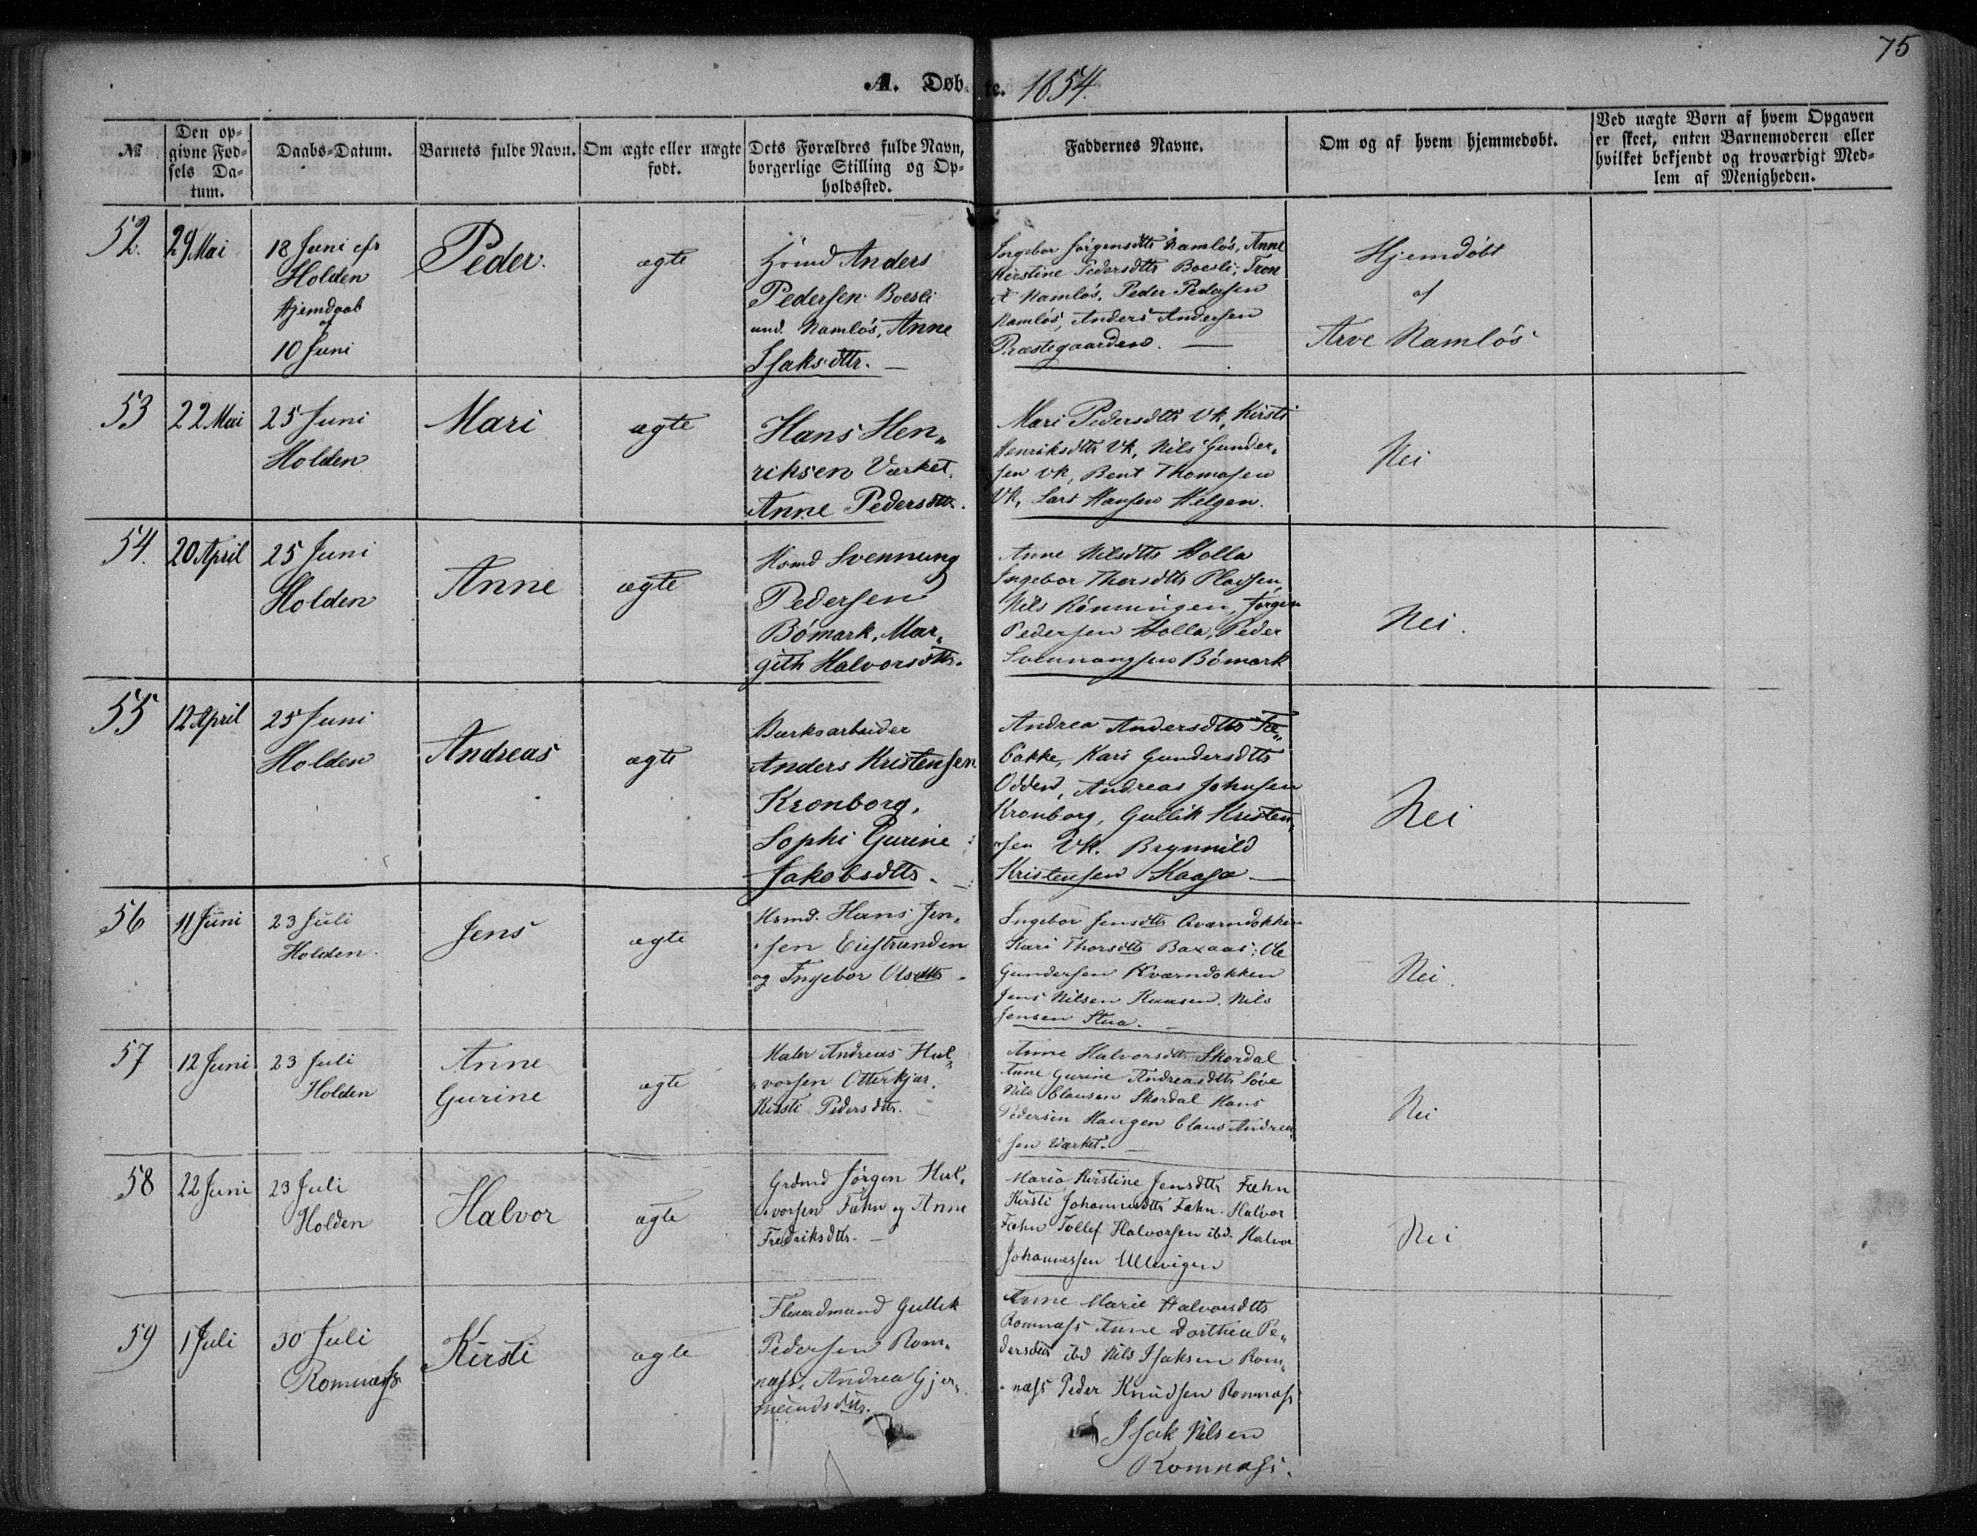 75
A. Døbte. 1854.
№
Den opgivne Fødsels Datum.
Daabs-Datum.
Barnets fulde Navn.
Om ægte eller uægte født.
Dets Forældres fulde Navn, borgerlige Stilling og Opholdssted.
Faddernes Navne.
Om og af hvem hjemmedøbt.
Ved uægte Børn af hvem Opgaven er skeet, enten Barnemoderen eller hvilket bekjendt og troværdigt Medlem af Menigheden.
52. 29 Mai
18 Juni
Holden
Hjemdaab
af
10 Juni
Peder.
ægte
Anders
Pedersen Boesli
und. Namløs, Anne
Isaksdtr. —
Ingebor Jørgensdttr Namløs, Anne
Kirstine Pedersdttr Boesli, Tron
A Namløs, Peder Pedersen
Namløs, Anders Andersen
Præstegaarden. —
Hjemdøbt
af
Arve Namløs
53 22 Mai
25 Juni
Holden
Mari
ægte
Hans Hen„
riksen Værket,
Anne Pedersdttr.
Mari Pedersdttr Vk, Kirsti
Henriksdttr Vk, Nils Gunder„
sen Vk, Bent Thomasen
Vk, Lars Hansen Helgen.
Nei
54. 20 April
25 Juni
Holden
Anne
ægte
Hsmd Svennung
Pedersen
Bømark, Mar„
gith Halvorsdttr.
Anne Nilsdttr Holla
Ingebor Thorsdttr Pladsen,
Nils Rønningen, Jørgen
Pedersen Holla, Peder
Svennungsen Bømark
Nei.
55 12 April
25 Juni
Holden
Andreas
ægte
Værksarbeider
Anders Kristensen
Kronborg,
Sophi Gurine
Jakobsdttr. —
Andrea Andersdttr Fæ„
bakke, Kari Gundersdttr
Odden, Andreas Johnsen
Kronborg, Gullik Kristen„
sen Vk. Brynnild
Kristensen Kaasa —
Nei
56 11 Juni
23 Juli
Holden.
Jens
ægte
Hsmd. Hans Jen„
sen Eiestranden
og Ingebor Olsdttr.
Ingebor Jensdttr Qværndokken
Kari Thorsdttr Baxaas; Ole
Gundersen Kværndokken
Jens Nilsen Kaasen. Nils
Jensen Stua. —
Nei.
57 12 Juni
23 Juli
Holden
Anne
Gurine
ægte
Maler Andreas Hal„
vorsen Otterkjær.
Kirsti Pedersdttr. —
Anne Halvorsdttr Skordal
Anne Gurine Andreasdttr Søve
Nils Clausen Skordal Hans
Pedersen Haugen Claus Andrea„
sen Værket. —
Nei
58 22 Juni
23 Juli
Holden
Halvor
ægte
Grdmd Jørgen Hal„
vorsen Fæhn og Anne
Fredriksdttr. —
Maria Kirstine Jensdttr Fæhn
Kirsti Johannesdttr Fæhn. Halvor
Fæhn Tollef Halvorsen ibd. Halvor
Johannessen Ullevigen
Nei
59 1 Juli
30 Juli
Romnæss
Kirsti
ægte
Gullik
Pedersen Rom„
næss, Andrea Gjer„
mundsdttr.
Anne Marie Halvorsdttr
Romnæss Anne Dorthea Pe„
dersdttr ibd Nils Isaksen Rom„
næss Peder Knudsen Romnæss
Isak Nilsen
Romnæss.